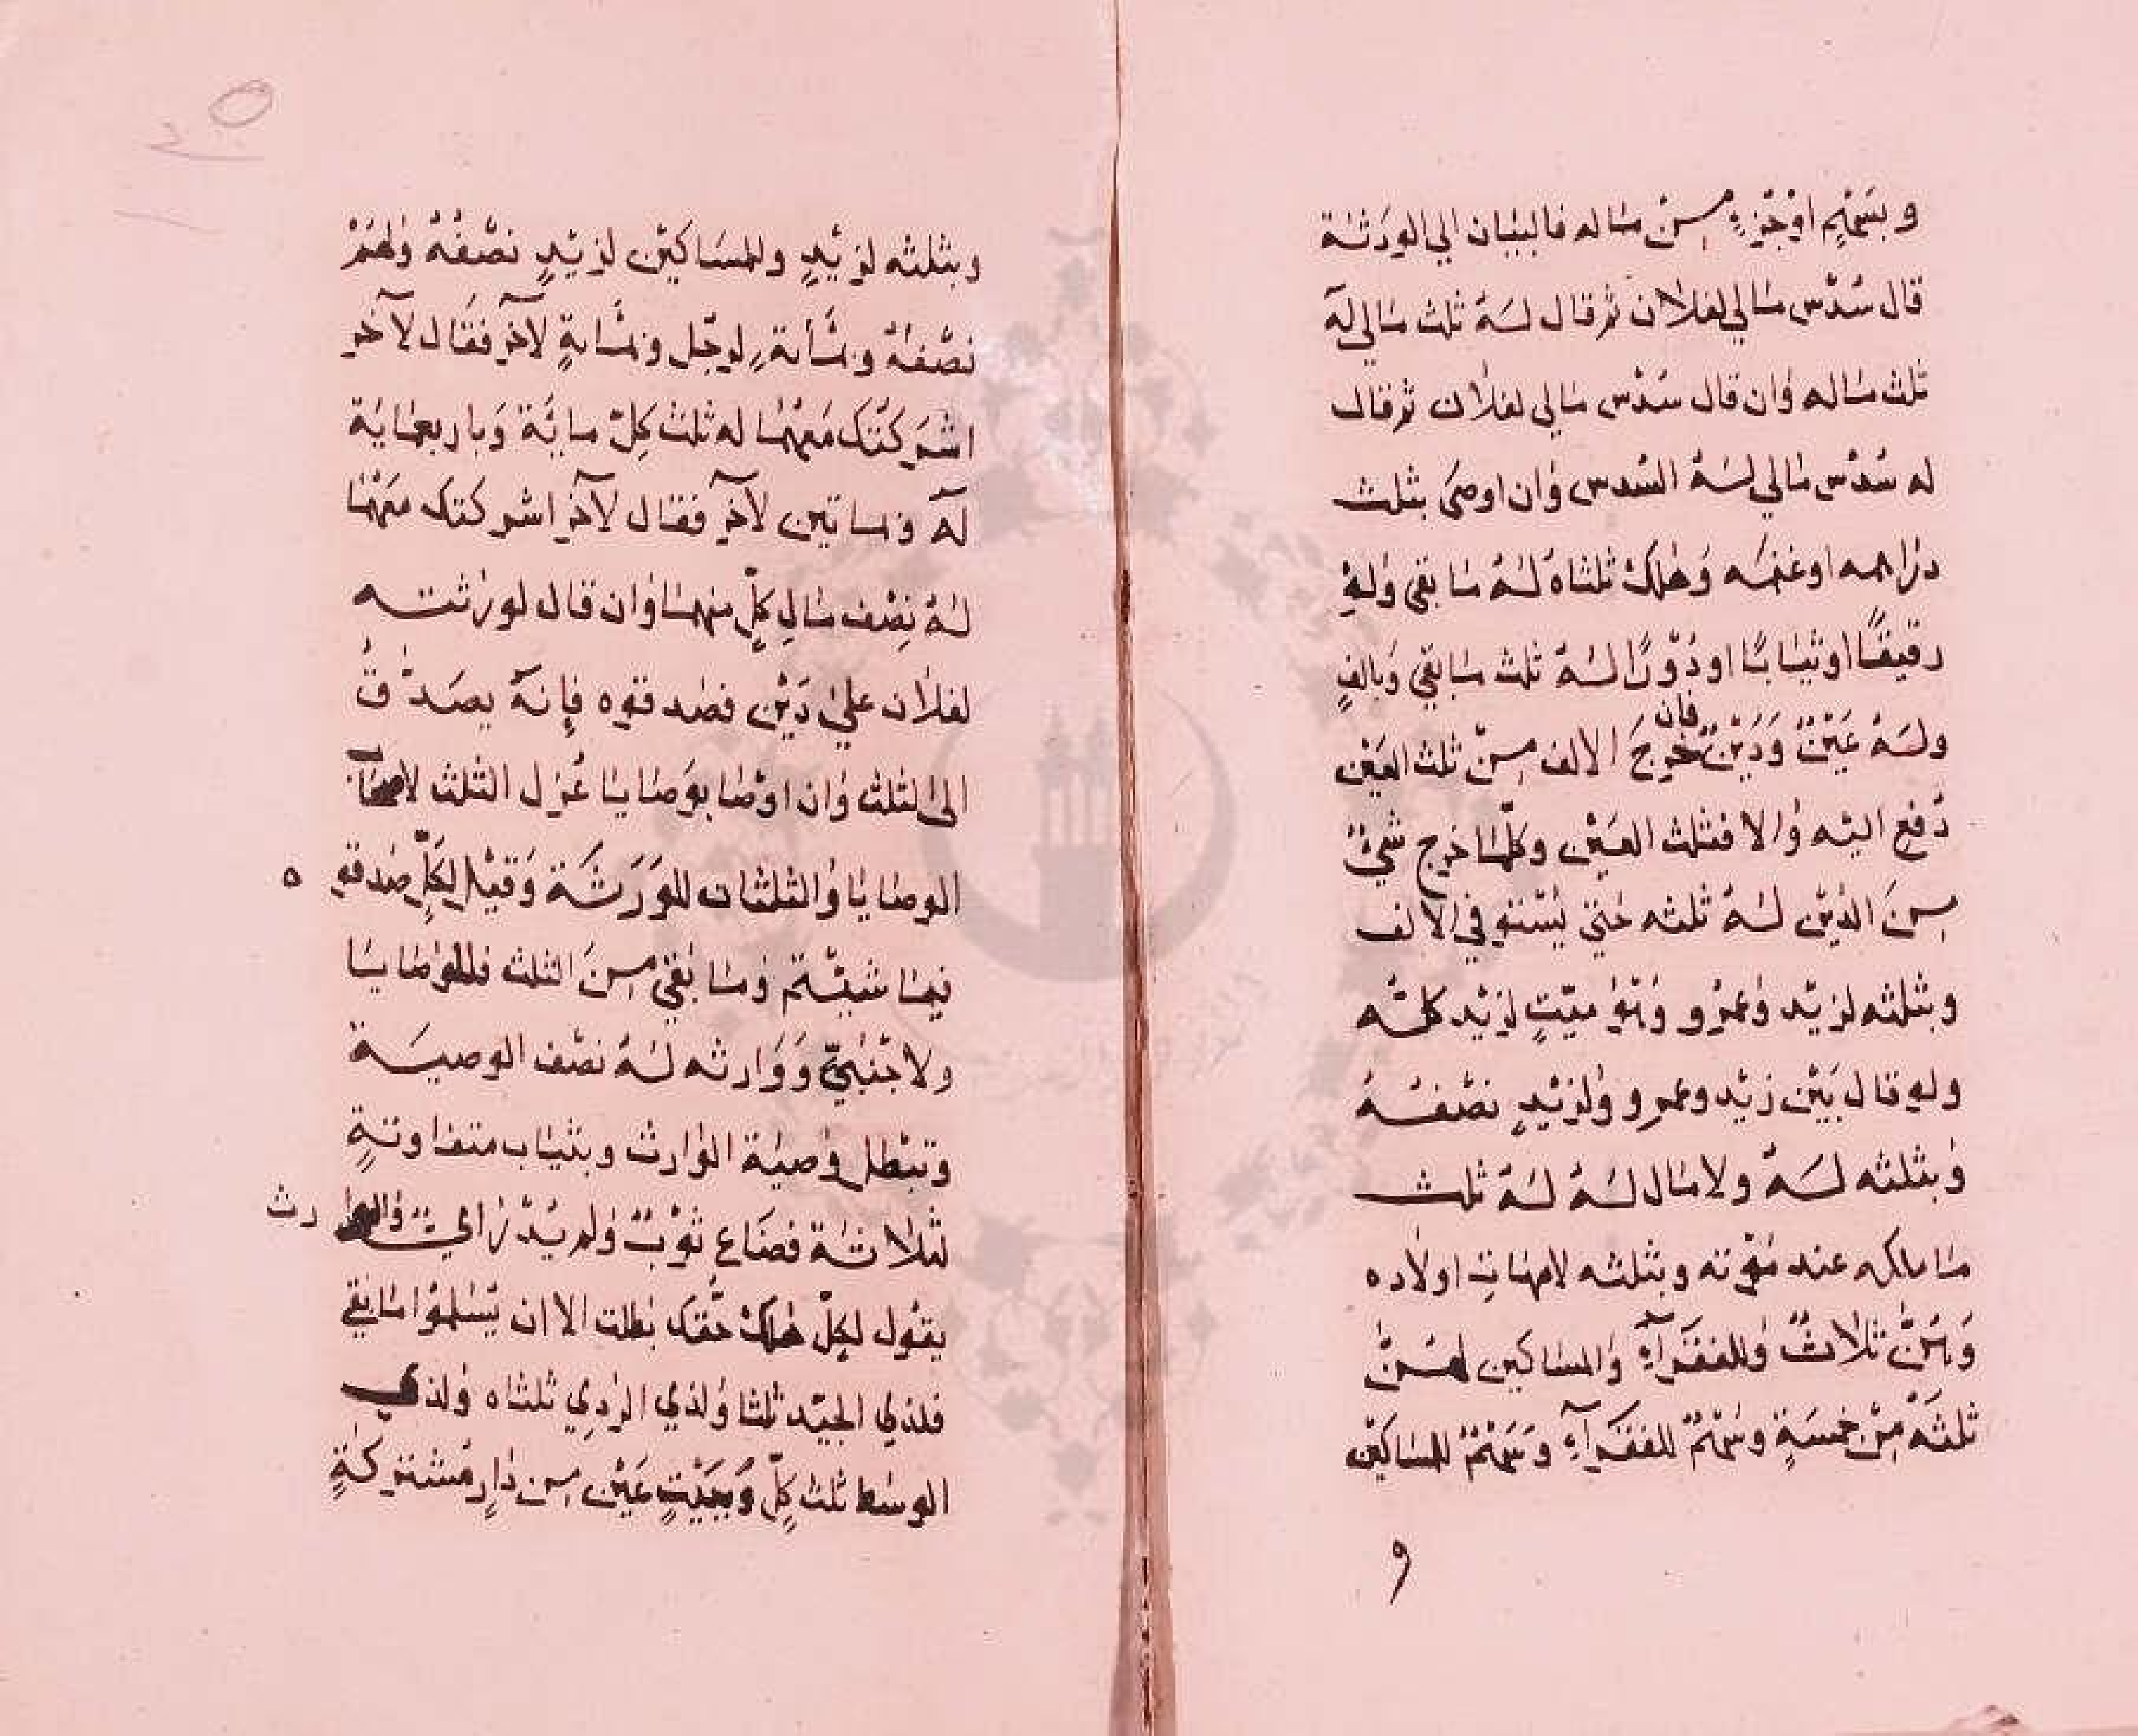 وبسهم او جزء من ماله فالبيان الي الورثة
قال سدس مالي لفلان ثم قال له ثلث مالي له
ثلث ماله وان قال سدس مالي لفلان ثم قال
له سدس مالي له السدس وان اوصى بثلث
دراهمه او غنمه وهلك ثلثاه له ما بقي ولو
رقيقًا او ثيابًا او دورًا له ثلث ما بقي وبالفٍ
وله عين ودين فان خرج الالف من ثلث العين
دفع اليه والا فثلث العين وكلما خرج شيٌ
من الدين له ثلثه حتي يستوفي الالف
وبثلثه لزيد وعمرو وهو ميت لزيد كله
ولو قال بين زيد وعمرو ولزيدٍ نصفه
وبثلثه له ولا مال له له ثلث
ما ملكه عند موته وبثلثه لامهات اولاده
وهنّ ثلاث وللفقرآء والمساكين لهنّ
ثلثة من خمسة وسهم للفقرآء وسهم للمساكين
و
وبثلثه لزيدٍ وللمساكين لزيدٍ نصفه ولهم
نصفه وبمأية لرجل وبمأيةٍ لآخر فقال لآخر
اشركتك معهما له ثلث كلّ ماية وباربعماية
له وبماتين لآخر فقال لآخر اشركتك معهما
له نصف مال كلٍّ منهما وان قال لورثته
لفلان علي دين فصدقوه فإنه يصدّق
الى الثلث وان اوصا بوصايا عزل الثلث لاصحآب
الوصايا والثلثان للورثة وقيل لكلٍّ صدقوه
فيما شيتم وما بقي من الثلث فللوصايا
ولاجنبيّ ووارثه له نصف الوصية
وتبطل وصية الوارث وبثياب متفاوتةٍ
لثلاثة فضاع ثوبٌ ولم يدر ايّ والوارث
يقول لكلّ هلك حقك بطلت الا ان يسلموا ما بقي
فلذي الجيّد ثلثا ولذي الردي ثلثاه ولذي
الوسط ثلث كلٍّ وببيتٍ عين من دارٍ مشتركةٍ